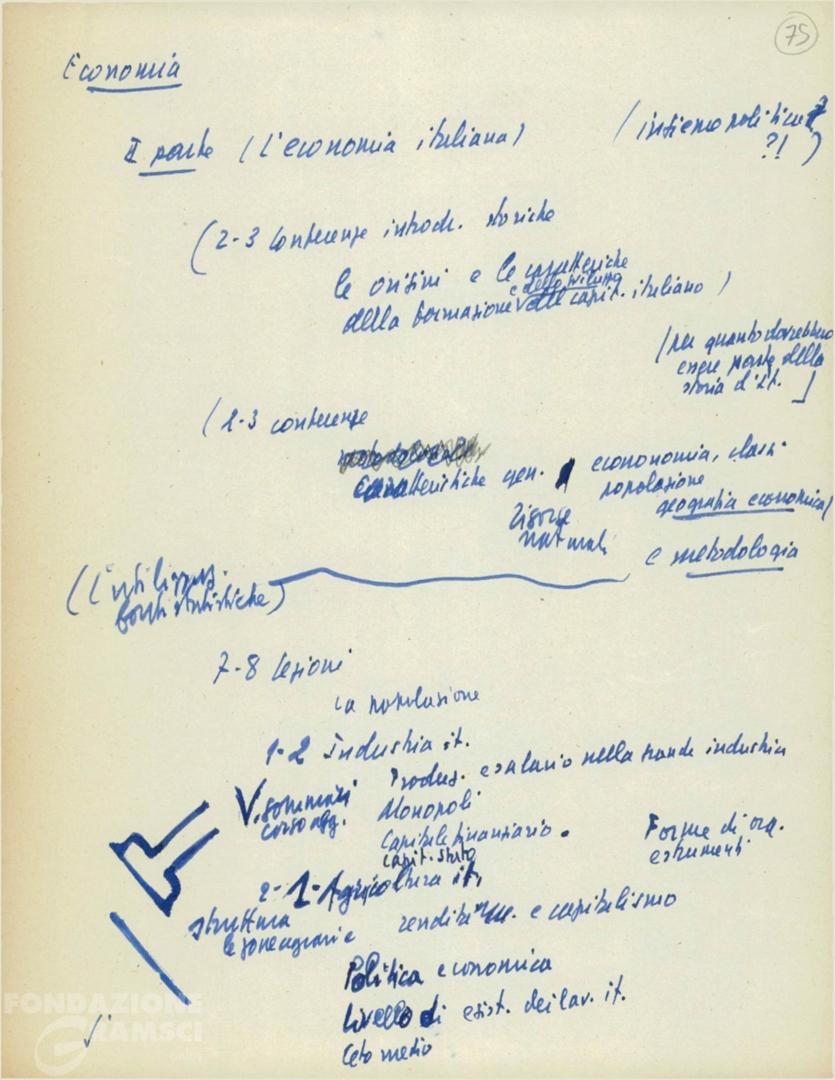 75
Economia
II parte (L'economia italiana)
(insieme politica
?!)
(2-3 conferenze introd. storiche
le origini e le caratteristiche
e dello sviluppo
della formazione del capit. italiano)
(per quanto dovrebbero
essere parte della
storia d'It.]
(2-3 conferenze
Caratteristiche gen. econonomia, class.
popolazione
geografia economica)
risorse
naturali
e metodologia
(L'utilizzaz.
fonti statistiche)
7-8 lezioni
La popolazione
1-2 Industria it.
Produz. e salario nella grande industria
V. sommari
corso agg.
Monopoli
Capitale finanziario.
capit. stato
Forme di org.
e strumenti
2-1-Agricoltura it,
struttura
le zone agrarie
rendita e capitalismo
Politica economica
Livello di esist. dei lav. it.
Ceto medio
FONDAZIONE
GRAMSCI